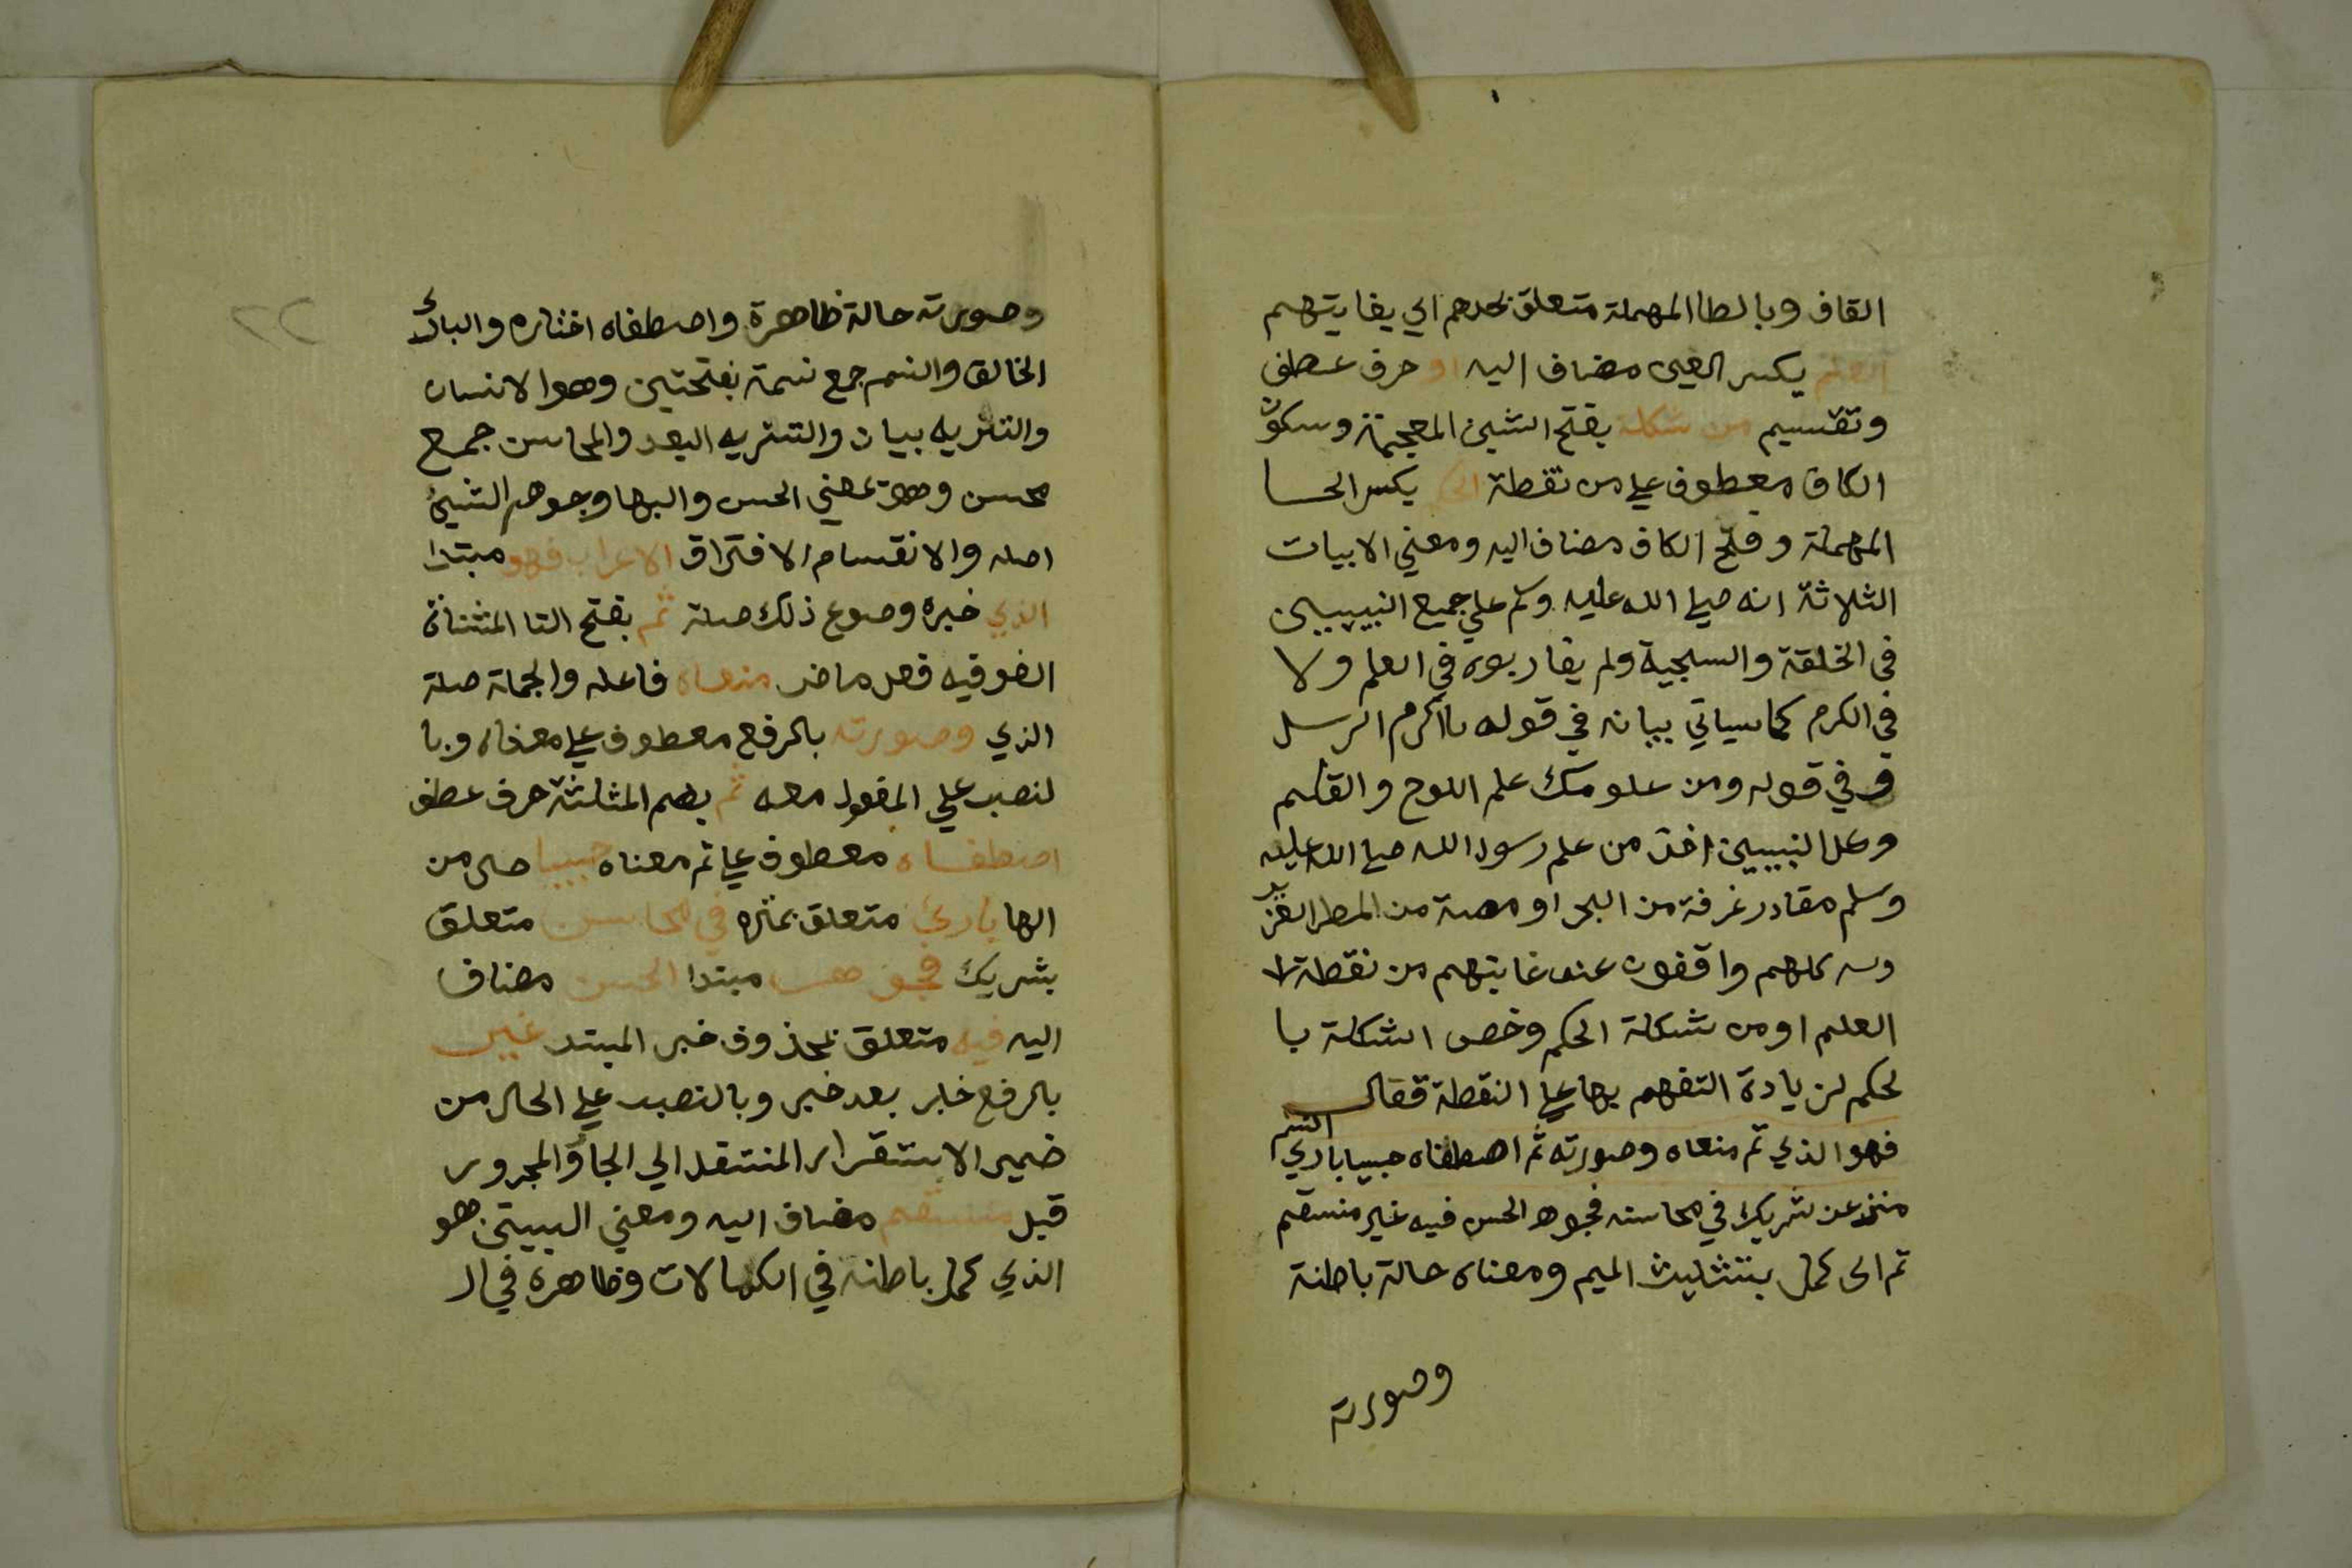 القاف وبالطا المهملة متعلق بحدهم اي بغايتهم
العلم بكسر العين مضاف اليه او حرف عطف
وتقسيم من شكلة بفتح الشين المعجمة وسكون
الكاف معطوف علي من نقطة الحكم بكسر الحا
المهملة وفتح الكاف مضاف اليه ومعني الابيات
الثلاثة انه صلي الله عليه وسلم علي جميع النبيين
في الخلقة والسجية ولم يقاربوه في العلم ولا
في الكرم كما سياتي بيانه في قوله يا اكرم الرسل
و في قوله ومن علومك علم اللوح والقلم
وكل النبيين اخذ من علم رسول الله صلي الله عليه
وسلم مقادر غرفة من البحر او مصة من المطر الغزير
وسه كلهم واقفون عند غايتهم من نقطة
العلم او من شكلة الحكم وخص الشكلة با
لحكم لزيادة التفهم بها علي النقطة فقال
فهو الذي تم معناه وصورته ثم اصطفاه حبيبا باري النسم
منزه عن شريك في محاسنه فجوهر الحسن فيه غير منقسم
تم اي كمل بتثليث الميم ومعناه حالة باطنة
وصورته
وصورته حالة ظاهرة واصطفاه اختاره والبارئ
الخالق والنسم جمع نسمة بفتحتين وهو الانسان
والتنزيه بيان والتنزيه البعد والمحاسن جمع
محسن وهو بمعني الحسن والبها وجوهر الشيئ
اصله والانقسام الافتراق الاعراب فهو مبتدا
الذي خبره وصوغ ذلك صلة تم بفتح التا المثناة
الفوقيه فعل ماض معناه فاعله والجملة صلة
الذي وصورته بالرفع معطوف علي معناه وبا
لنصب علي المفعول معه ثم بضم المثلثة حرف عطف
اصطفاه معطوف علي تم معناه حبيبا حال من
الها بارئ متعلق بمنزه في محاسن متعلق
بشريك فجوهر مبتدا الحسن مضاف
اليه فيه متعلق بمحذوف خبر المبتدا غير
بالرفع خبر بعد خبر وبالنصب علي الحال من
ضمير الاستقرار المنتقل الي الجار والمجرور
قبل منقسم مضاف اليه ومعني البيتين هو
الذي كمل باطنه في الكمالات وظاهره في ال